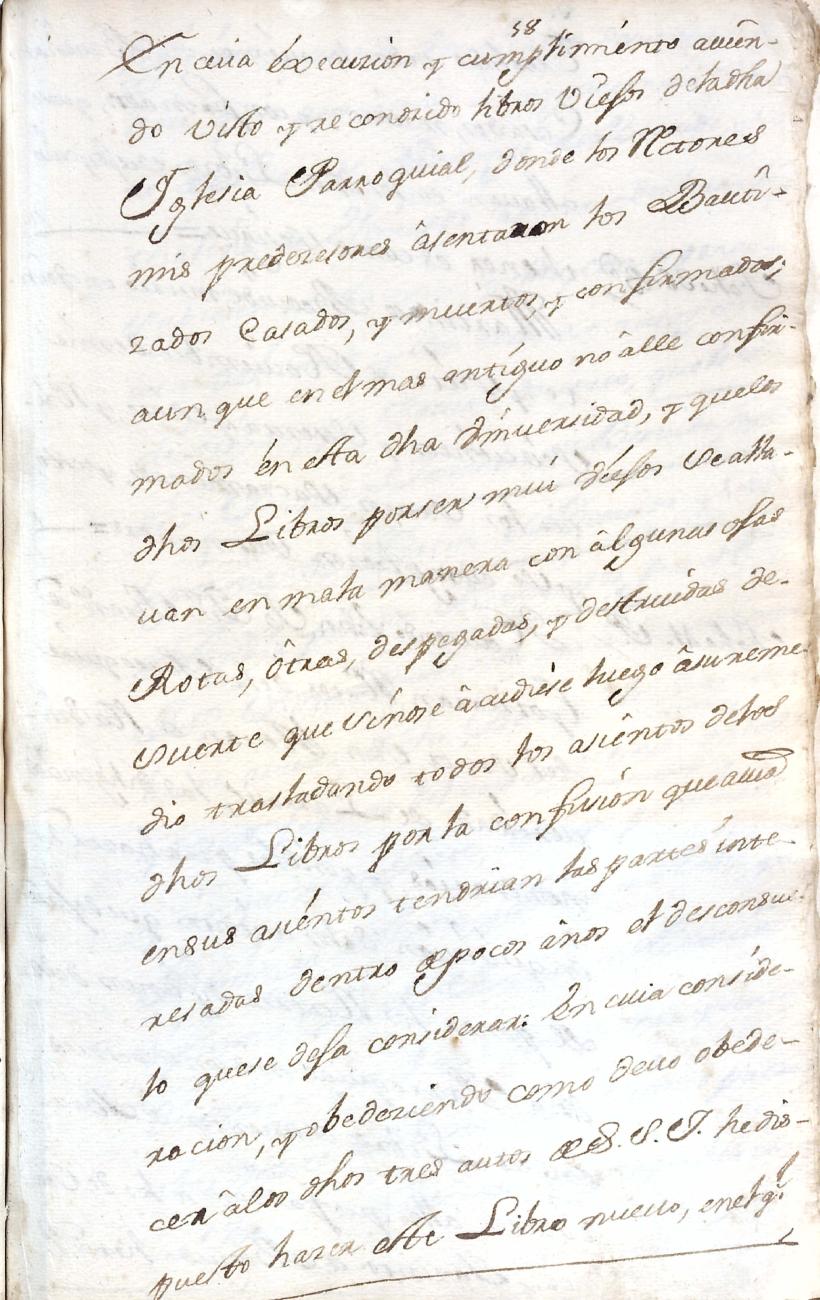 58
En cuia execucion y cumplimiento avién-
do visto y reconocido libros viejos de la dha
Iglesia Parroquial, donde los Rectores
mis predecesores âsentaron los Bautî-
zados Casados, y muertos, y confirmados;
aunque en el mas antíguo no âlle confir-
mados en esta dha Vniversidad, y que los
dhos Libros por ser mui viejos se alla-
van en mala manera con âlgunas ojas
Rotas, ôtras, despegadas, y destruidas de
suerte que si no se âcudiese luego â su reme-
dio trasladando todos los asientos de los
dhos Libros por la confusión que avia
en sus asiéntos tendrian las partes inte-
resadas dentro de pocos años el desconsue-
lo que se deja considerar: En cuia conside-
racion, y obedeziendo como devo obede-
cer â los dhos tres autos de S. S. I. he dis-
puesto hazer este Libro nuevo, en el q.^l